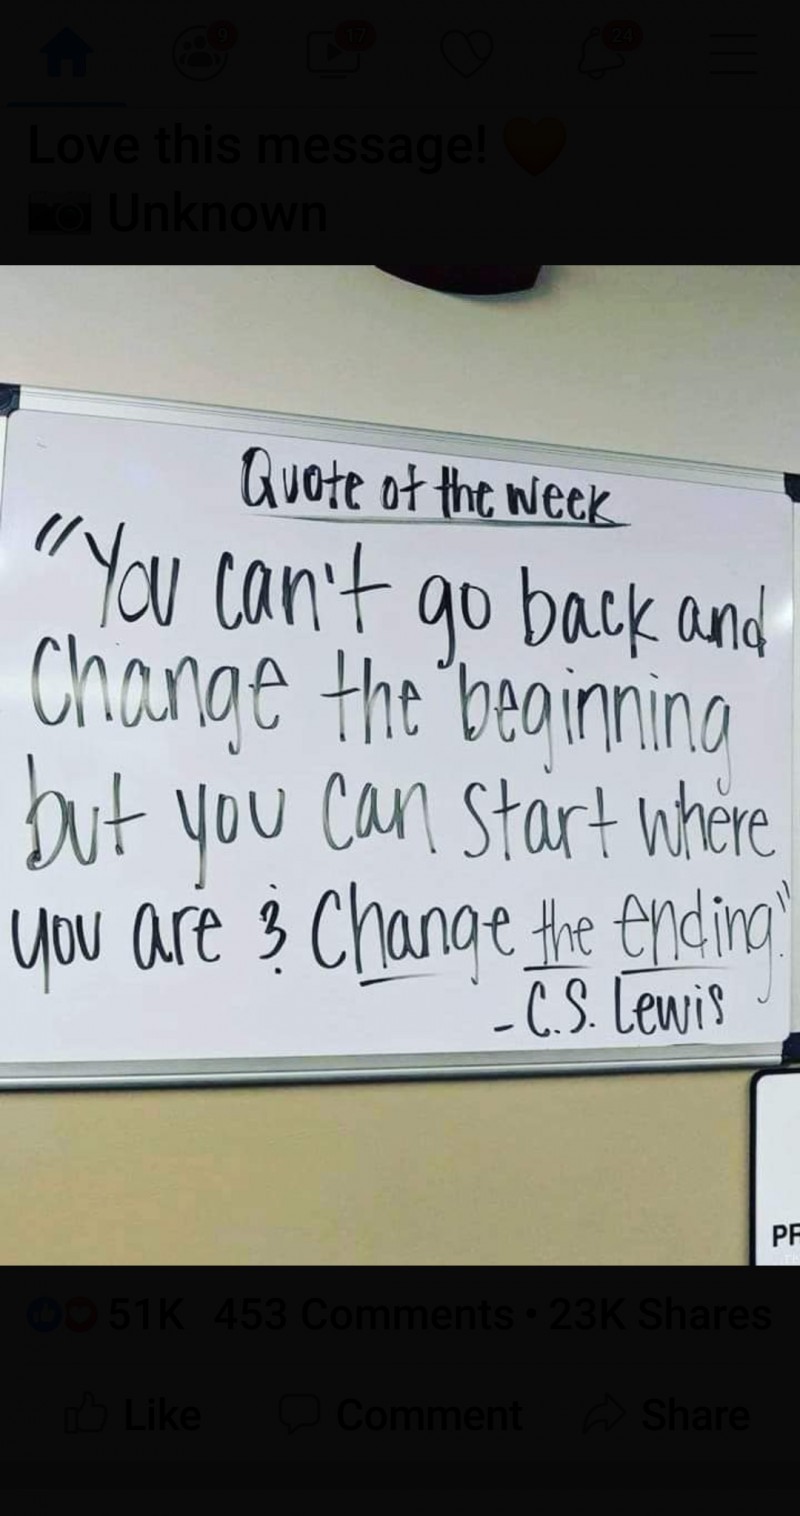 9
17
24
Love this message! 🧡
📷 Unknown
Quote of the week
"You can't go back and
Change the beginning
but you can start where
you are & Change the ending."
- C.S. Lewis
PR
51K 453 Comments • 23K Shares
Like Comment Share